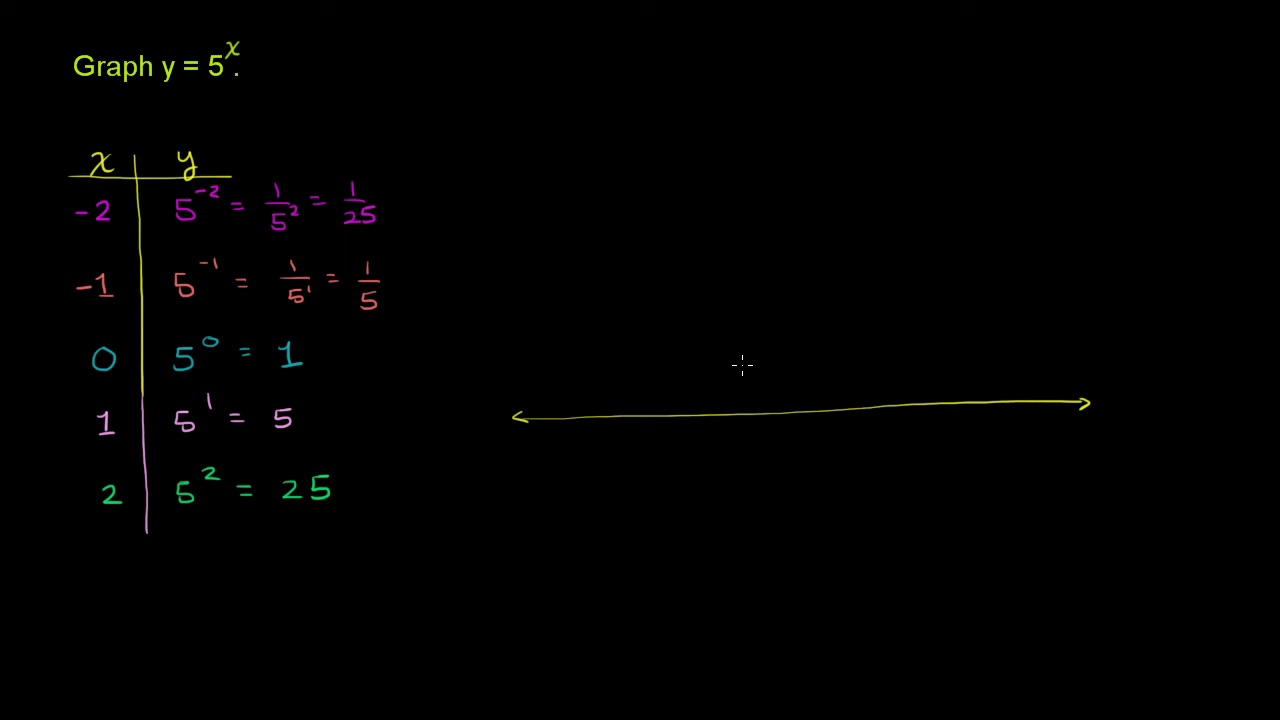 Graph y = 5^x.
x y
-2 5^-2 = 1/5^2 = 1/25
-1 5^-1 = 1/5^1 = 1/5
0 5^0 = 1
1 5^1 = 5
2 5^2 = 25